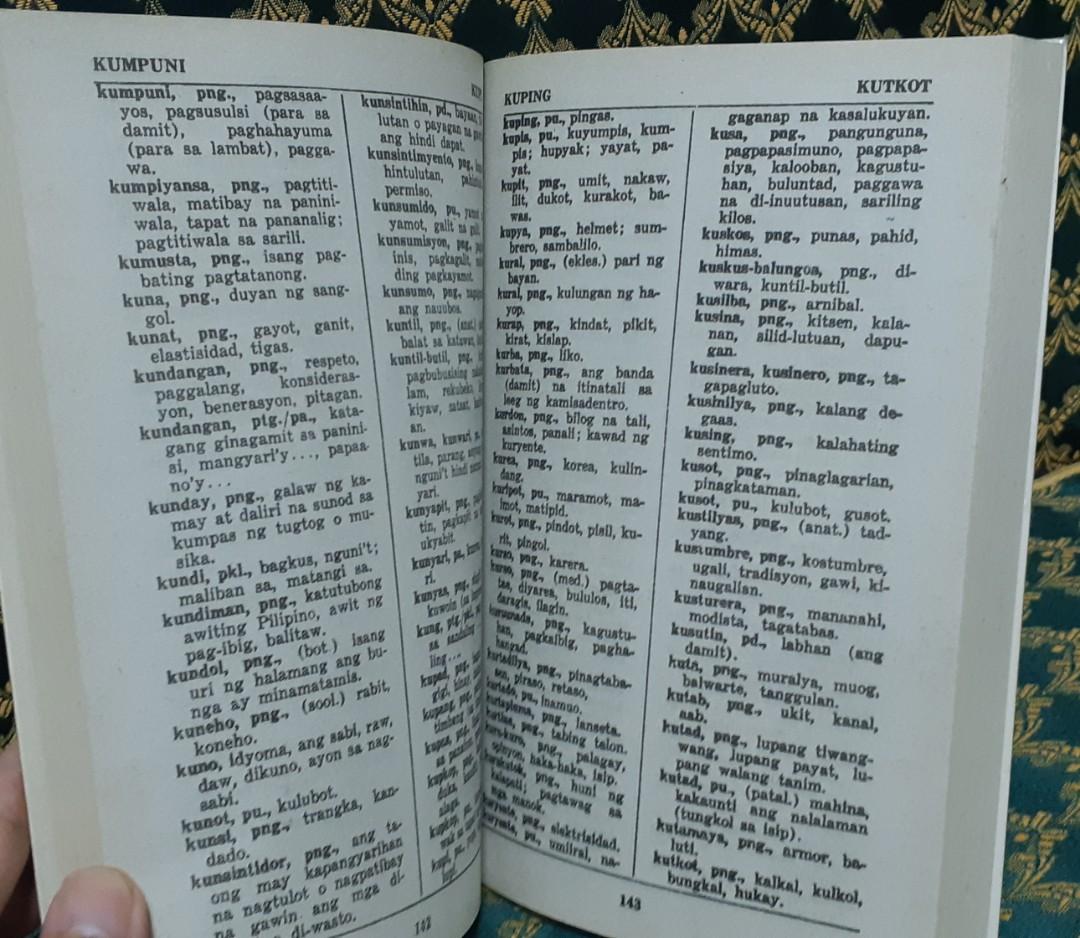 KUMPUNI
kumpuni, png., pagsasaa-
yos, pagsusulsi (para sa
damit), paghahayuma
(para sa lambat), pagga-
wa.
kumpiyansa, png., pagtiti-
wala, matibay na panini-
wala, tapat na pananalig;
pagtitiwala sa sarili.
kumusta, png., isang pag-
bating pagtatanong.
kuna, png., duyan ng sang-
gol.
kunat, png., gayot, ganit,
elastisidad, tigas.
kundangan, png., respeto,
paggalang, konsideras-
yon, benerasyon, pitagan.
kundangan, ptg./pa., kata-
gang ginagamit sa panini-
si, mangyari'y..., papaa-
no'y...
kunday, png., galaw ng ka-
may at daliri na sunod sa
kumpas ng tugtog o mu-
sika.
kundi, pkl., bagkus, nguni't;
maliban sa, matangi sa.
kundiman, png., katutubong
awiting Pilipino, awit ng
pag-ibig, balitaw.
kundol, png., (bot.) isang
uri ng halamang ang bu-
nga ay minamatamis.
kuneho, png., (sool.) rabit,
koneho.
kuno, idyoma, ang sabi, raw,
daw, dikuno, ayon sa nag-
sabi.
kunot, pu., kulubot.
kunsi, png., trangka, kan-
dado.
kunsintidor, png., ang ta-
ong may kapangyarihan
na nagtulot o nagpatibay
na gawin ang mga di-
di-wasto.
kunsintihin, pd.,
lutan o payagan na
ang hindi dapat.
kunsintimyento, png.,
hintulutan,
permiso.
kunsumido, pu.,
yamot, galit na
kunsumisyon, png.,
inis, pagkagalit,
ding pagkayamot.
kunsumo, png.,
ang nauubos.
kuntil, png., (anat.)
balat sa katawan,
kuntil-butil, png.,
pagbubusising
lam, rekubeko,
kiyaw, satsat,
an.
kunwa, kunwari,
tila, parang,
nguni't hindi
yari.
kunyapit, png.,
tin, pagkapit
ukyabit.
kunyari, pa.,
ri.
kunyas, png.,
kung,
sa
ling...
142
KUPING
KUTKOT
kuping, pu., pingas.
kupis, pu., kuyumpis, kum-
pis; hupyak; yayat, pa-
yat.
kupit, png., umit, nakaw,
filit, dukot, kurakot, ba-
was.
kupya, png., helmet; sum-
brero, sambalilo.
kural, png., (ekles.) pari ng
bayan.
kural, png., kulungan ng ha-
yop.
kurap, png., kindat, pikit,
kirat, kislap.
kurba, png., liko.
kurbata, png., ang banda
(damit) na itinatali sa
leeg ng kamisadentro.
kurdon, png., bilog na tali,
asintos, panali; kawad ng
kuryente.
kurea, png., korea, kulin-
dang.
kuripot, pu., maramot, ma-
imot, matipid.
kurot, png., pindot, pisil, ku-
rit, pingol.
kurso, png., karera.
kurso, png., (med.) pagta-
tae, diyarea, bululos, iti,
daragis, ilagin.
kursunada, png., kagustu-
han, pagkaibig, pagha-
hangad.
kurtadilya, png., pinagtaba-
san, piraso, retaso.
kurtado, pu., inamuo.
kurtaplema, png., lanseta.
kurtina, png., tabing talon.
kuru-kuro, png., palagay,
opinyon, haka-haka, isip.
kurukutok, png., huni ng
kalapati; pagtawag sa
mga manok.
kuryente, png., elektrisidad.
kuryente, pu., umiiral, na-
gaganap na kasalukuyan.
kusa, png., pangunguna,
pagpapasimuno, pagpapa-
siya, kalooban, kagustu-
han, buluntad, paggawa
na di-inuutusan, sariling
kilos.
kuskos, png., punas, pahid,
himas.
kuskus-balungos, png., di-
wara, kuntil-butil.
kusilba, png., arnibal.
kusina, png., kitsen, kala-
nan, silid-lutuan, dapu-
gan.
kusinera, kusinero, png., ta-
gapagluto.
kusinilya, png., kalang de-
gaas.
kusing, png., kalahating
sentimo.
kusot, png., pinaglagarian,
pinagkataman.
kusot, pu., kulubot, gusot.
kustilyas, png., (anat.) tad-
yang.
kustumbre, png., kostumbre,
ugali, tradisyon, gawi, ki-
naugalian.
kusturera, png., mananahi,
modista, tagatabas.
kusutin, pd., labhan (ang
damit).
kuta, png., muralya, muog,
balwarte, tanggulan.
kutab, png., ukit, kanal,
sab.
kutad, png., lupang tiwang-
wang, lupang payat, lu-
pang walang tanim.
kutad, pu., (patal.) mahina,
kakaunti ang nalalaman
(tungkol sa isip).
kutamaya, png., armor, ba-
luti.
kutkot, png., kalkal, kulkol,
bungkal, hukay.
143